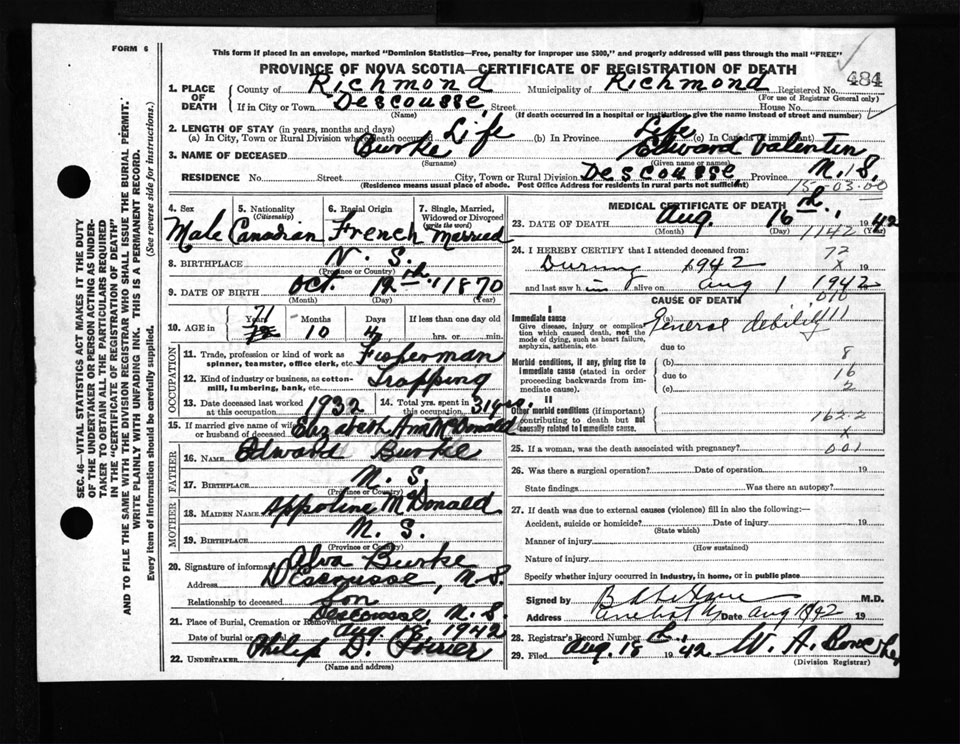 FORM 6
This form if placed in an envelope, marked "Dominion Statistics—Free, penalty for improper use $300," and properly addressed will pass through the mail "FREE"
PROVINCE OF NOVA SCOTIA—CERTIFICATE OF REGISTRATION OF DEATH
484
1. PLACE OF DEATH County of Richmond Municipality of Richmond Registered No.
(For use of Registrar General only)
If in City or Town Descousse, Street House No.
(Name) (If death occurred in a hospital or institution, give the name instead of street and number)
2. LENGTH OF STAY (in years, months and days)
(a) In City, Town or Rural Division where death occurred Life (b) In Province Life (c) In Canada (if immigrant)
3. NAME OF DECEASED Burke Edward Valentin
(Surname) (Given name or names)
RESIDENCE No. Street City, Town or Rural Division Descousse, Province N.S.
(Residence means usual place of abode. Post Office Address for residents in rural parts not sufficient)
15-03-00
4. Sex 5. Nationality (Citizenship) 6. Racial Origin 7. Single, Married, Widowed or Divorced (write the word)
Male Canadian French Married
8. BIRTHPLACE N. S.
(Province or Country)
9. DATE OF BIRTH Oct. 12th. 1870
(Month) (Day) (Year)
10. AGE in Years Months Days If less than one day
71 10 4 hrs. or min.
OCCUPATION
11. Trade, profession or kind of work as spinner, teamster, office clerk, etc. Fisherman
12. Kind of industry or business, as cotton-mill, lumbering, bank, etc. Trapping
13. Date deceased last worked at this occupation 1932 14. Total yrs. spent in this occupation 31 yrs.
15. If married give name of wife or husband of deceased Elizabeth Ann McDonald
FATHER
16. NAME Edward Burke
17. BIRTHPLACE N. S.
(Province or Country)
MOTHER
18. MAIDEN NAME Appoline McDonald
19. BIRTHPLACE N. S.
(Province or Country)
20. Signature of informant Alva Burke
Address Descousse, N.S.
Relationship to deceased Son
21. Place of Burial, Cremation or Removal Descousse, N. S.
Date of burial or removal Aug 18, 1942
22. UNDERTAKER Philip D. Poirier
(Name and address)
MEDICAL CERTIFICATE OF DEATH
23. DATE OF DEATH Aug. 16th. 1942
(Month) (Day) (Year)
1142
24. I HEREBY CERTIFY that I attended deceased from:
77
During 1942 x 19
and last saw him alive on Aug 1 1942
CAUSE OF DEATH 010
I
Immediate cause (a) General debility 11
Give disease, injury or complication which caused death, not the mode of dying, such as heart failure, asphyxia, asthenia, etc.
due to 8
Morbid conditions, if any, giving rise to immediate cause (stated in order proceeding backwards from immediate cause). (b) 16
due to
(c) 2
II
Other morbid conditions (if important) contributing to death but not causally related to immediate cause.
162-2
x
25. If a woman, was the death associated with pregnancy? 001
26. Was there a surgical operation? Date of operation 19
State findings Was there an autopsy?
27. If death was due to external causes (violence) fill in also the following:—
Accident, suicide or homicide? Date of injury 19
(State which)
Manner of injury
(How sustained)
Nature of injury
Specify whether injury occurred in industry, in home, or in public place
Signed by M.D.
Address Date Aug 18/42 19
28. Registrar's Record Number
29. Filed Aug. 18 1942 W. A.
(Division Registrar)
SEC. 46—VITAL STATISTICS ACT MAKES IT THE DUTY
OF THE UNDERTAKER OR PERSON ACTING AS UNDER-
TAKER TO OBTAIN ALL THE PARTICULARS REQUIRED
IN THE "CERTIFICATE OF REGISTRATION OF DEATH"
AND TO FILE THE SAME WITH THE DIVISION REGISTRAR WHO SHALL ISSUE THE BURIAL PERMIT.
WRITE PLAINLY WITH UNFADING INK. THIS IS A PERMANENT RECORD.
Every item of information should be carefully supplied. (See reverse side for instructions.)